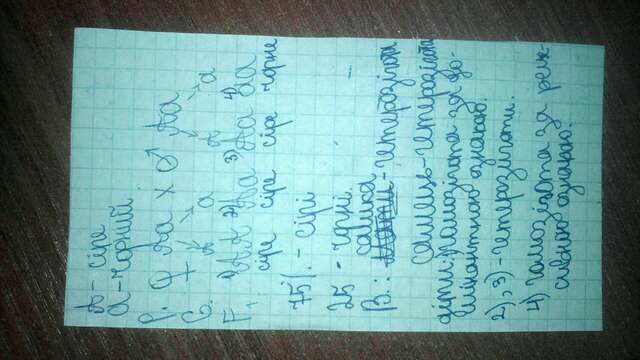 A - сіре
а - чорний
P: ♀ Aa x ♂ Aa
G: A a A a
F1 1) AA 2) Aa 3) Aa 4) aa
сіре сіре сіре чорне
75% - сірі
25 - чорні.
В: самка - гетерозігота
самець - гетерозігота
діти: гомозігота за до-
мінантною ознакою.
2), 3) - гетерозіготи.
4) гомозігота за реце-
сивною ознакою.